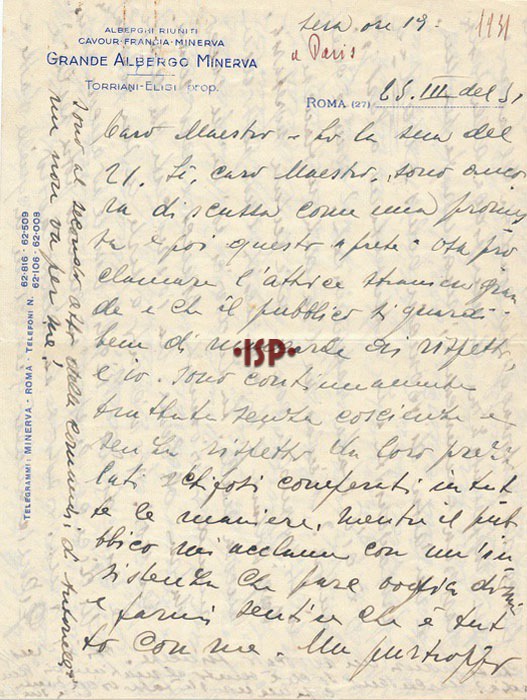 ALBERGHI RIUNITI
CAVOUR-FRANCIA-MINERVA
GRANDE ALBERGO MINERVA
TORRIANI-ELISI prop.
sera ore 19:
1931
a Paris
ROMA (27) 25. III del 31
Caro Maestro - Ho la sua del
21. Sì, caro Maestro, sono anco
ra discussa come una promes
sa e poi questo
clamare l'attrice stranieri gran
de e che il pubblico si guardi
bene di di rispetto,
e io sono continuamente
trattata senza coscienza e
senza rispetto da loro prez
zolati tifosi comperati in tut
te le maniere, mentre il pub
blico mi acclama con un'in
sistenza che pare voglia dirmi
e farmi sentire che è tut
to con me. Ma purtroppo
sono al secondo atto della commedia di Antonelli
ma non va per me!
TELEGRAMMI: MINERVA - ROMA - TELEFONI N. 62-816 · 62-509
62-106 · 62-008
·ISP·